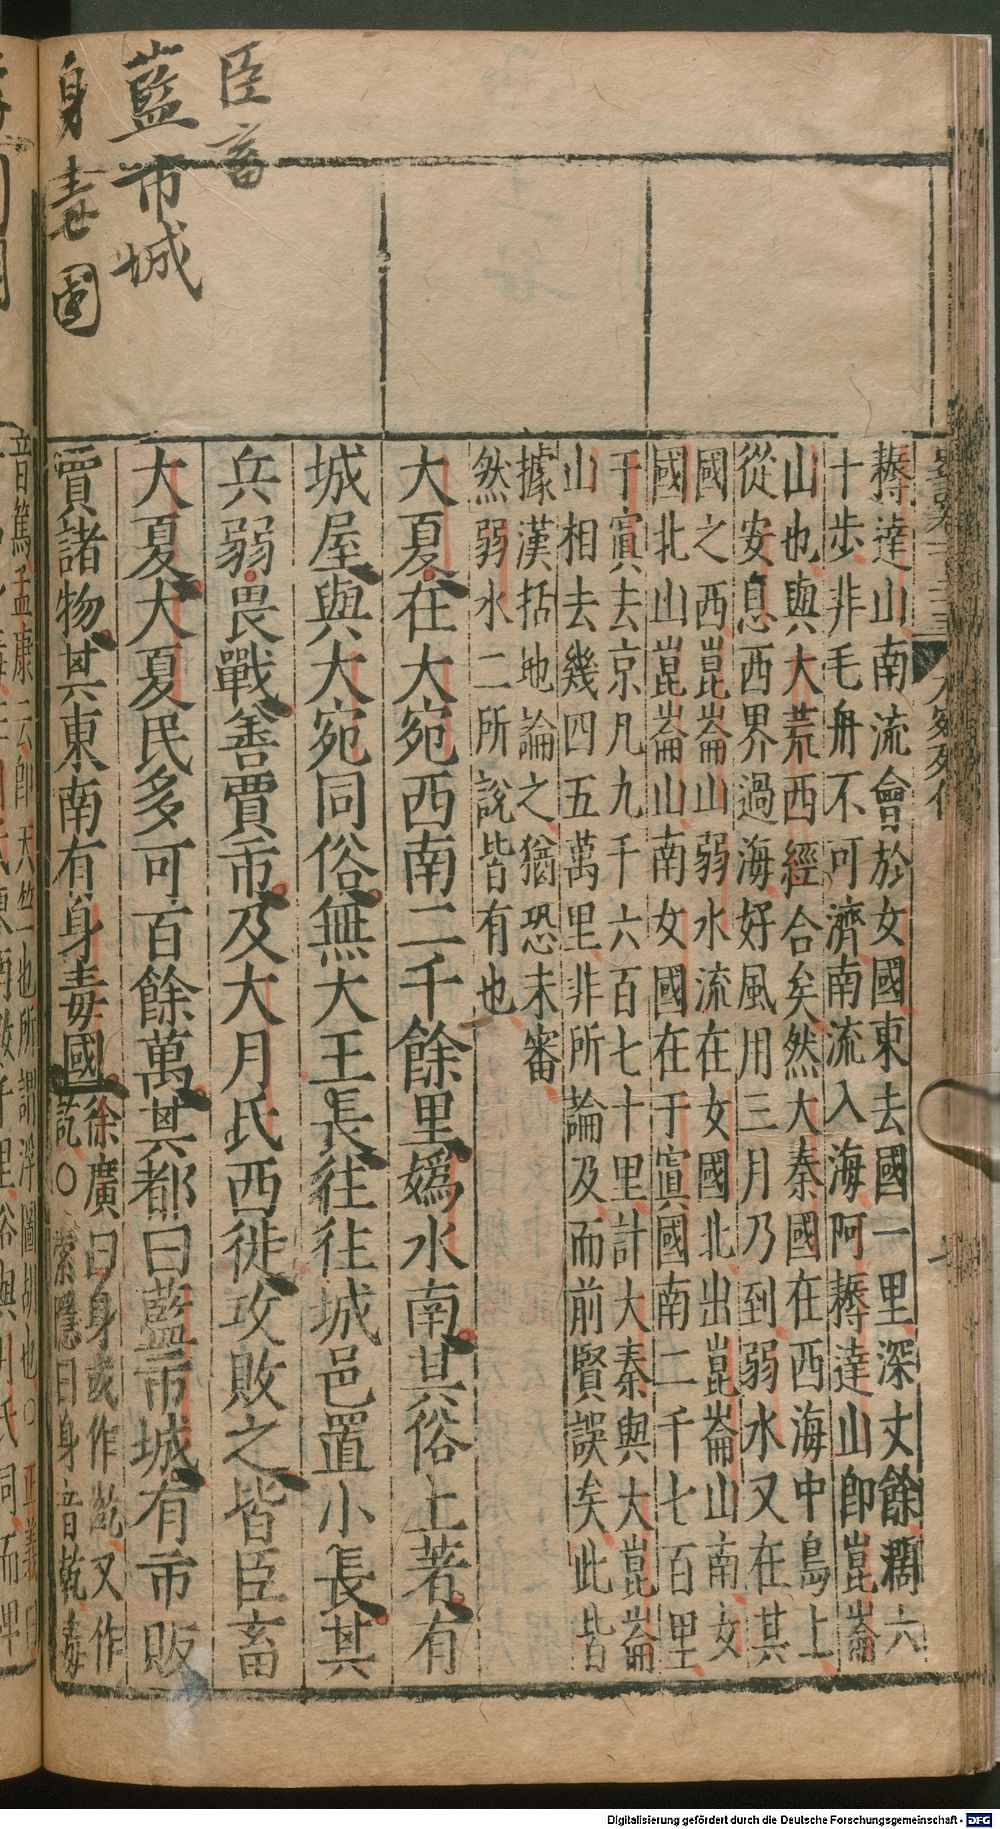 臣畜
藍市城
身毒國
史記卷一百二十三 大宛列傳
耨達山南流會於女國東去國一里深丈餘濶六
十步非毛舟不可濟南流入海阿耨達山即崑崙
山也與大荒西經合矣然大秦國在西海中島上
從安息西界過海好風用三月乃到弱水又在其
國之西崑崙山弱水流在女國北出崑崙山南女
國北山崑崙山南女國在于寘國南二千七百里
于寘去京凡九千六百七十里計大秦與大崑崙
山相去幾四五萬里非所論及而前賢誤矣此皆
據漢括地論之猶恐未審
然弱水二所說皆有也
大夏在大宛西南二千餘里媯水南其俗土著有
城屋與大宛同俗無大王長徃徃城邑置小長其
兵弱畏戰善賈市及大月氏西徙攻敗之皆臣畜
大夏大夏民多可百餘萬其都曰藍市城有市販
賈諸物其東南有身毒國
徐廣曰身或作乾又作
訖○索隱曰身音乾毒
音篤孟康云即天竺也所謂浮圖胡也○正義曰
Digitalisierung gefördert durch die Deutsche Forschungsgemeinschaft - DFG